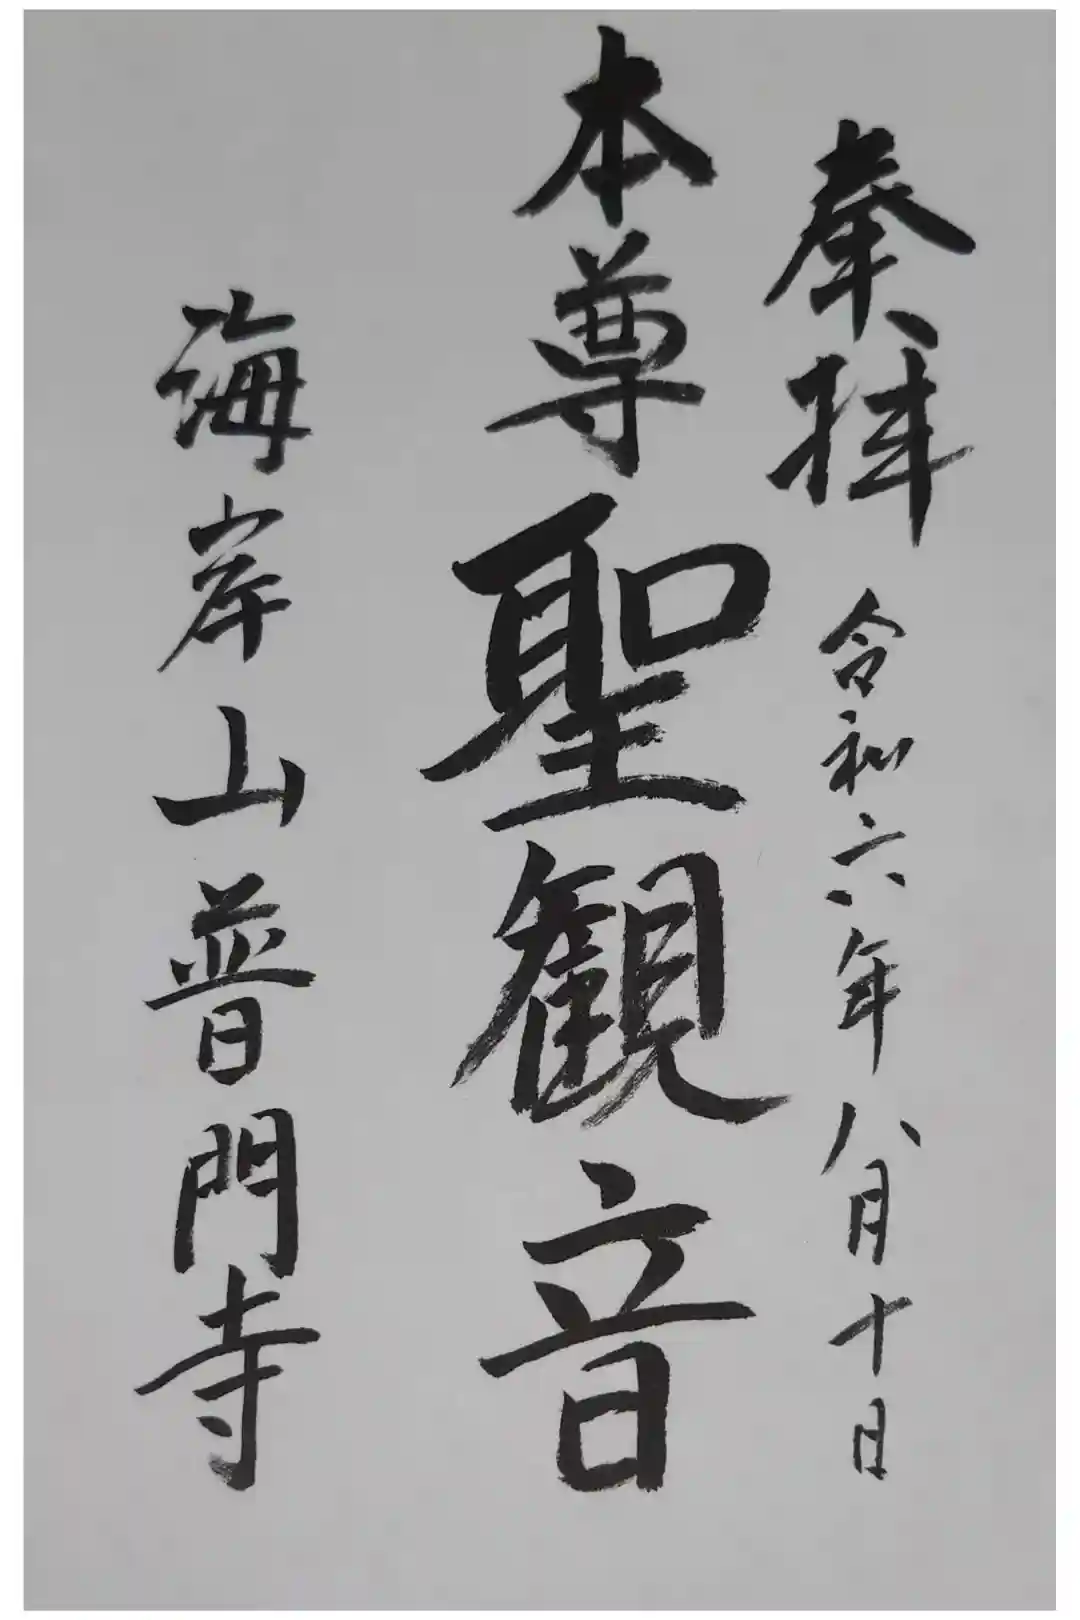 奉拝 令和六年八月十日
本尊聖観音
海岸山普門寺